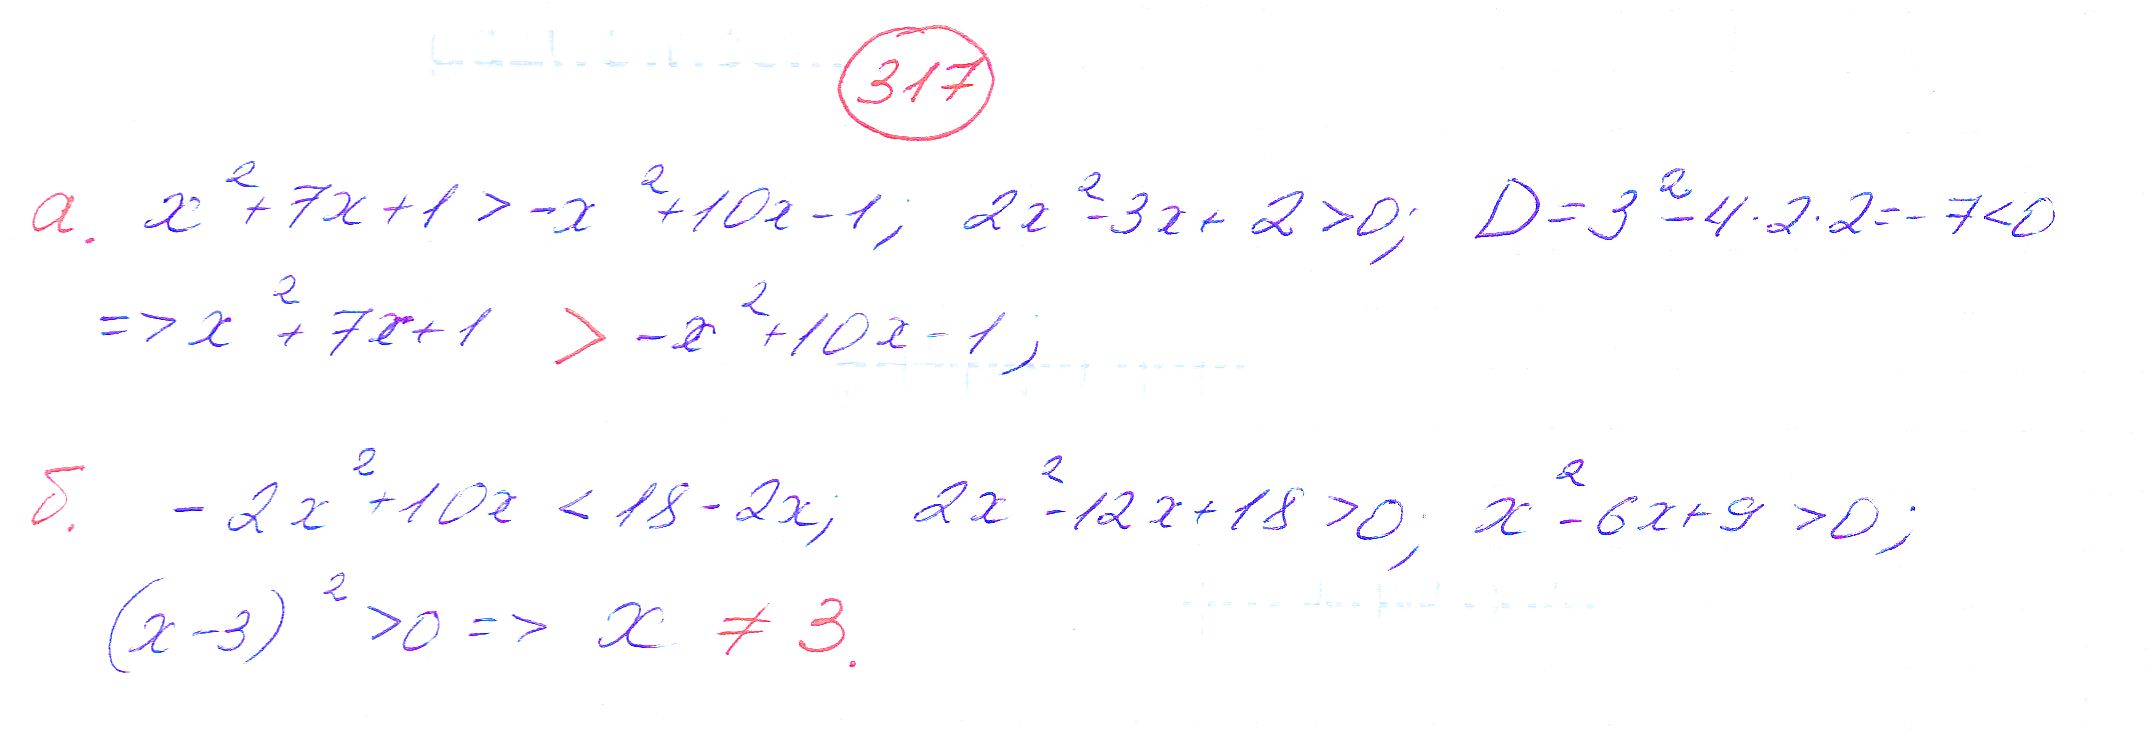 317
а. x²+7x+1>-x²+10x-1; 2x²-3x+2>0; D=3²-4·2·2=-7<0
=>x²+7x+1 > -x²+10x-1;
б. -2x²+10x<18-2x; 2x²-12x+18>0; x²-6x+9>0;
(x-3)²>0=> x ≠ 3.